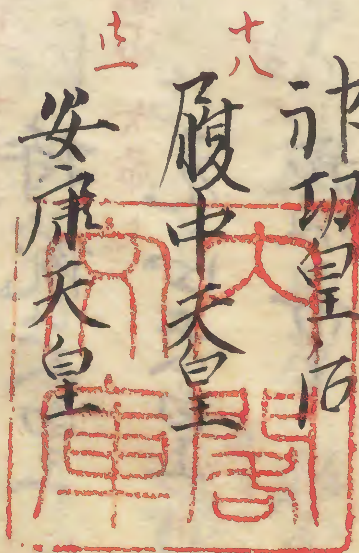 神功皇后
十八
履中天皇
廿一
安康天皇
内閣
文庫